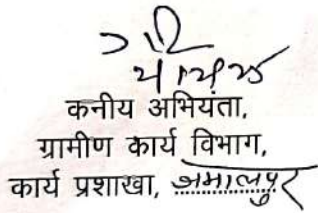 कनीय अभियंता,
ग्रामीण कार्य विभाग,
कार्य प्रशाखा, जमालपुर